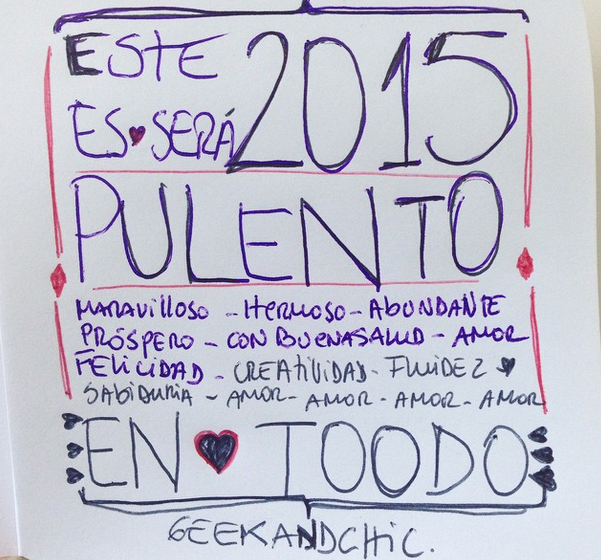 ESTE 2015
ES♥SERÁ
PULENTO
MARAVILLOSO - HERMOSO - ABUNDANTE
PRÓSPERO - CON BUENASALUD - AMOR
FELICIDAD - CREATIVIDAD - FLUIDEZ ♥
SABIDURIA - AMOR - AMOR - AMOR - AMOR
EN ♥ TOODO
GEEKANDCHIC.